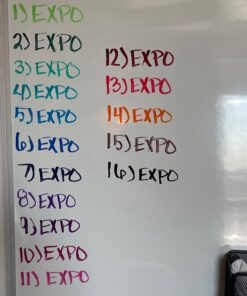 1) EXPO
2) EXPO
3) EXPO
4) EXPO
5) EXPO
6) EXPO
7) EXPO
8) EXPO
9) EXPO
10) EXPO
11) EXPO
12) EXPO
13) EXPO
14) EXPO
15) EXPO
16) EXPO